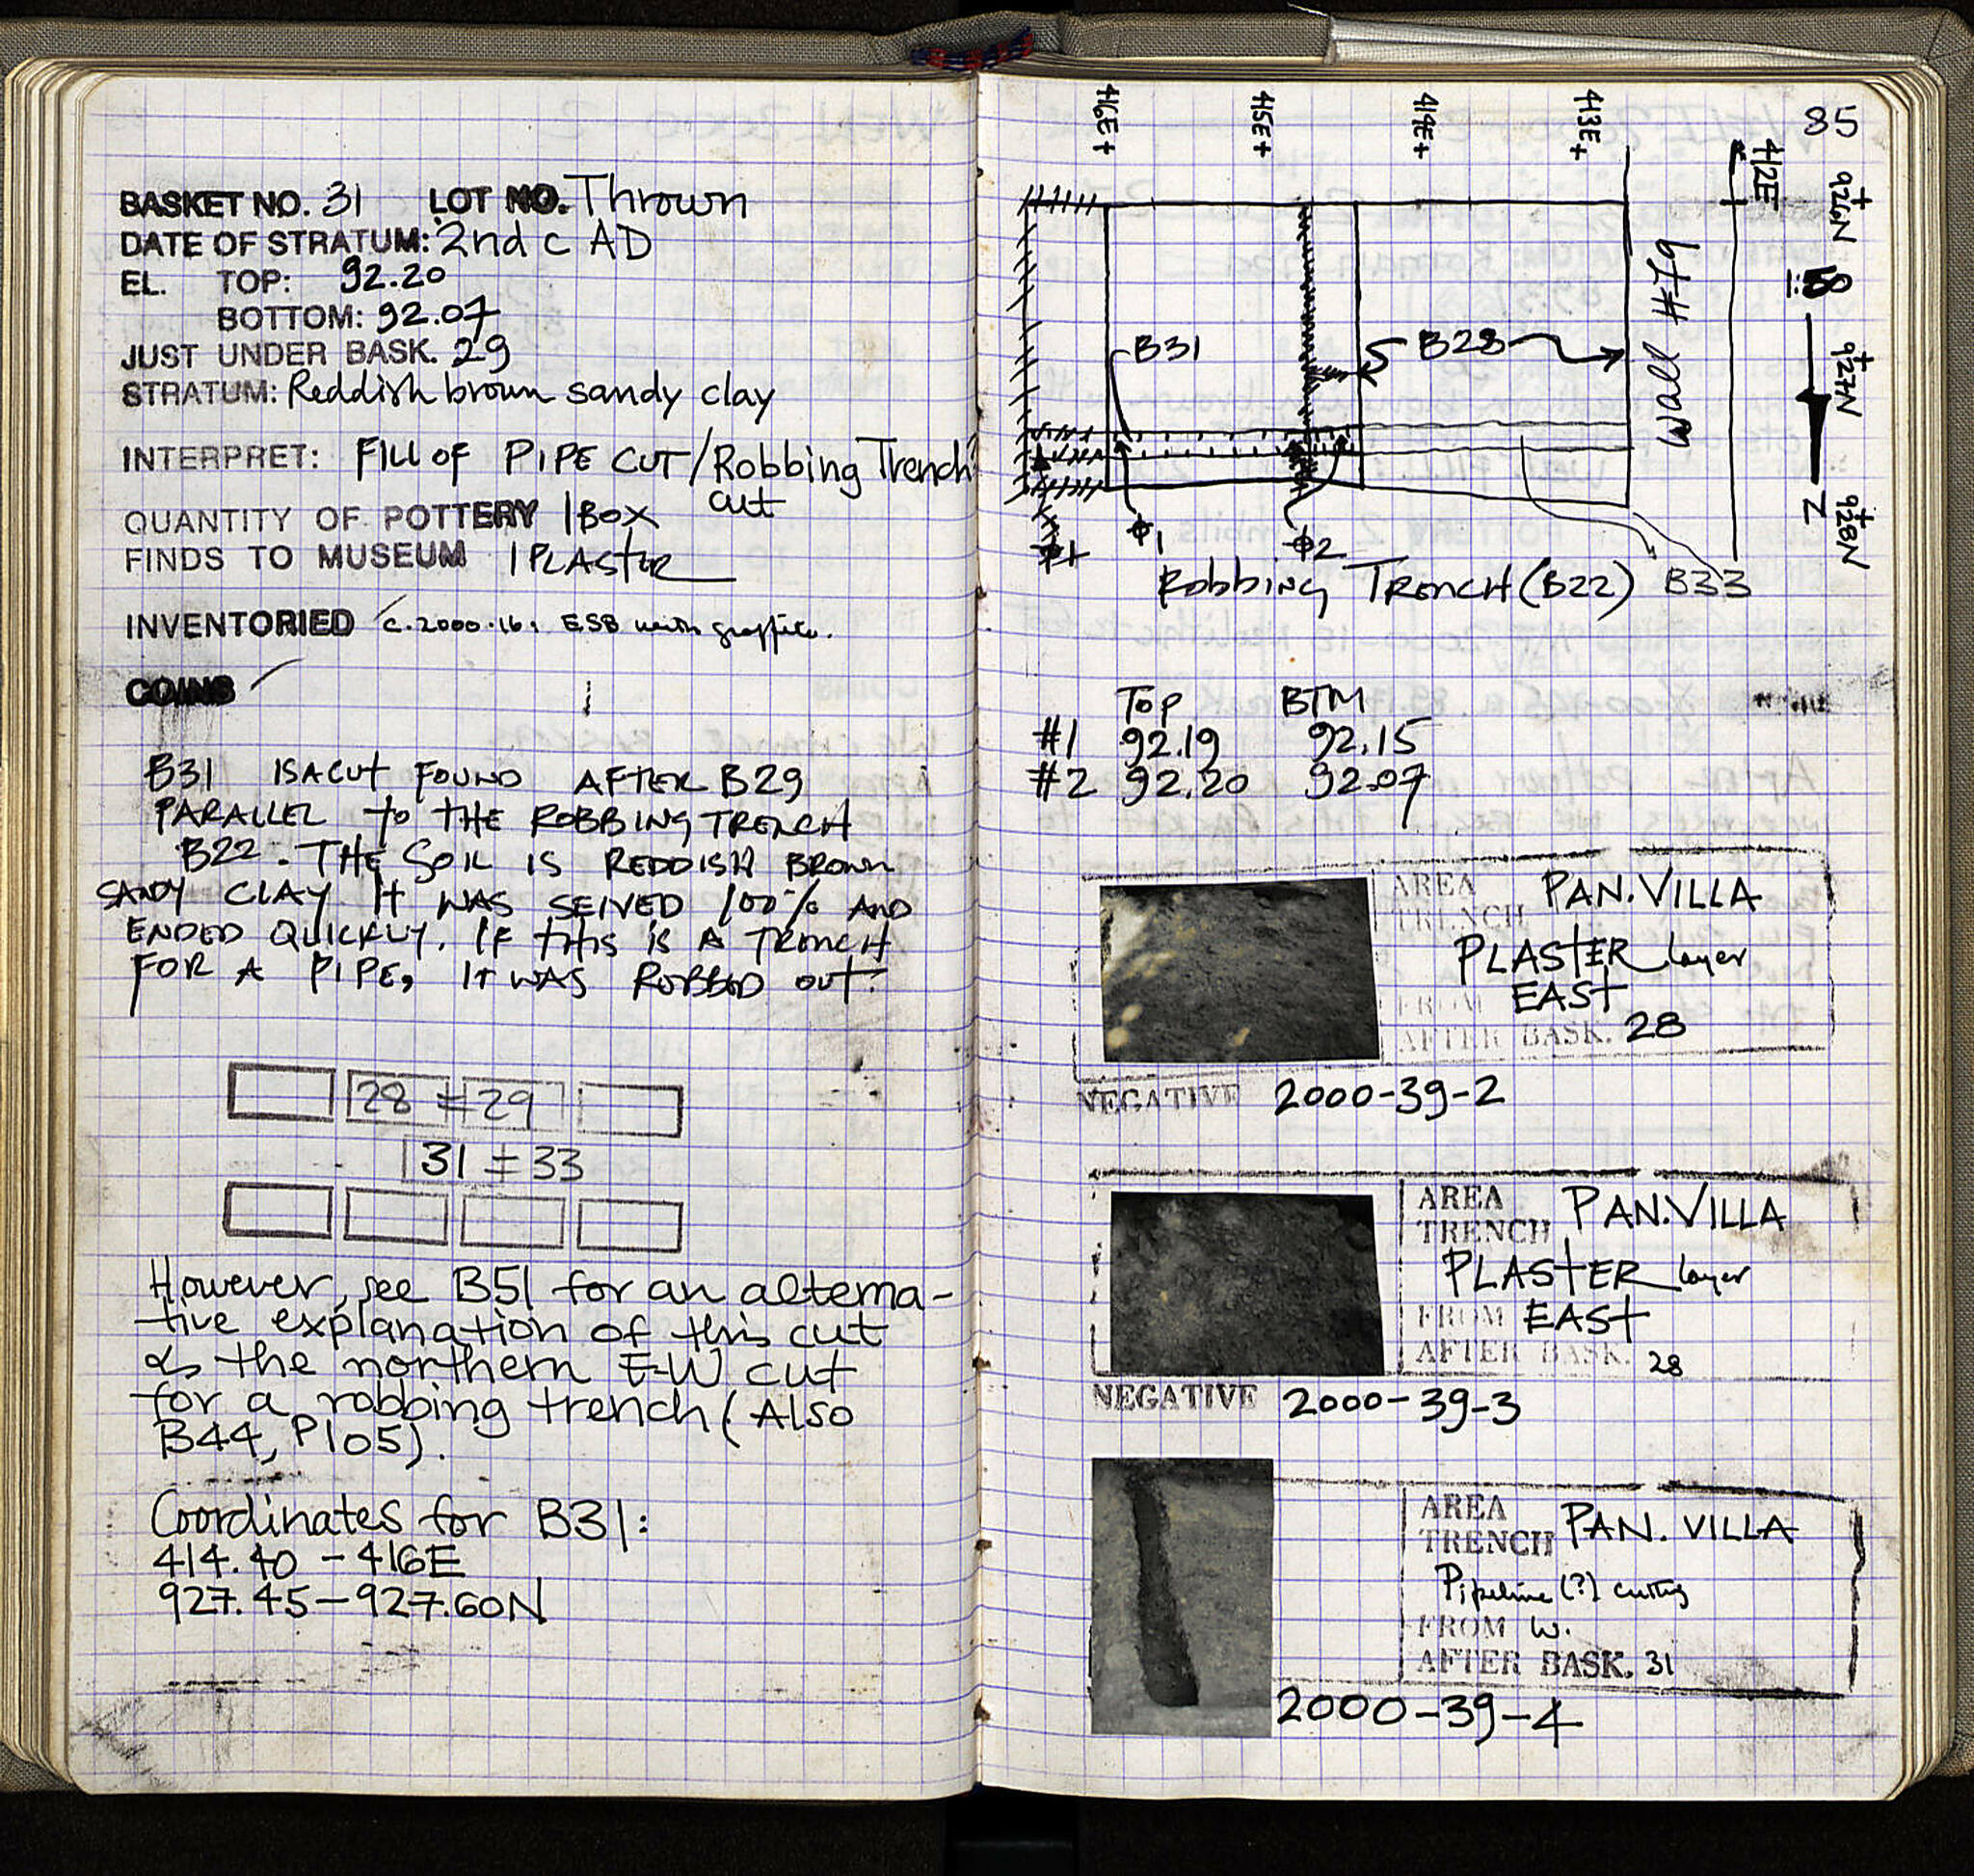 BASKET NO. 31 LOT NO. Thrown
DATE OF STRATUM: 2nd c AD
EL. TOP: 92.20
BOTTOM: 92.07
JUST UNDER BASK. 29
STRATUM: Reddish brown sandy clay
INTERPRET: FILL OF PIPE CUT/Robbing Trench
cut
QUANTITY OF POTTERY 1 BOX
FINDS TO MUSEUM 1 PLASTER
INVENTORIED C.2000.16: ESB with graffito.
COINS
B31 IS A CUT FOUND AFTER B29
PARALLEL to THE ROBBING TRENCH
B22. THE SOIL IS REDDISH BROWN
SANDY CLAY It WAS SEIVED 100% AND
ENDED QUICKLY. IF THIS IS A TRENCH
FOR A PIPE, IT WAS ROBBED OUT.
28 = 29
31 = 33
However, see B51 for an alterna-
tive explanation of this cut
& the northern E-W cut
for a robbing trench (Also
B44, P105).
Coordinates for B31:
414.40 - 416E
927.45 - 927.60N
85
416E+
415E+
414E+
413E+
412E
926N
927N
928N
Wall #79
B31
B28
N
1
2
Robbing TRENCH (B22) B33
TOP BTM
#1 92.19 92.15
#2 92.20 92.07
AREA PAN. VILLA
TRENCH
PLASTER layer
FROM EAST
AFTER BASK. 28
NEGATIVE 2000-39-2
AREA PAN. VILLA
TRENCH
PLASTER layer
FROM EAST
AFTER BASK. 28
NEGATIVE 2000-39-3
AREA
TRENCH PAN. VILLA
Pipeline (?) cutting
FROM W.
AFTER BASK. 31
2000-39-4